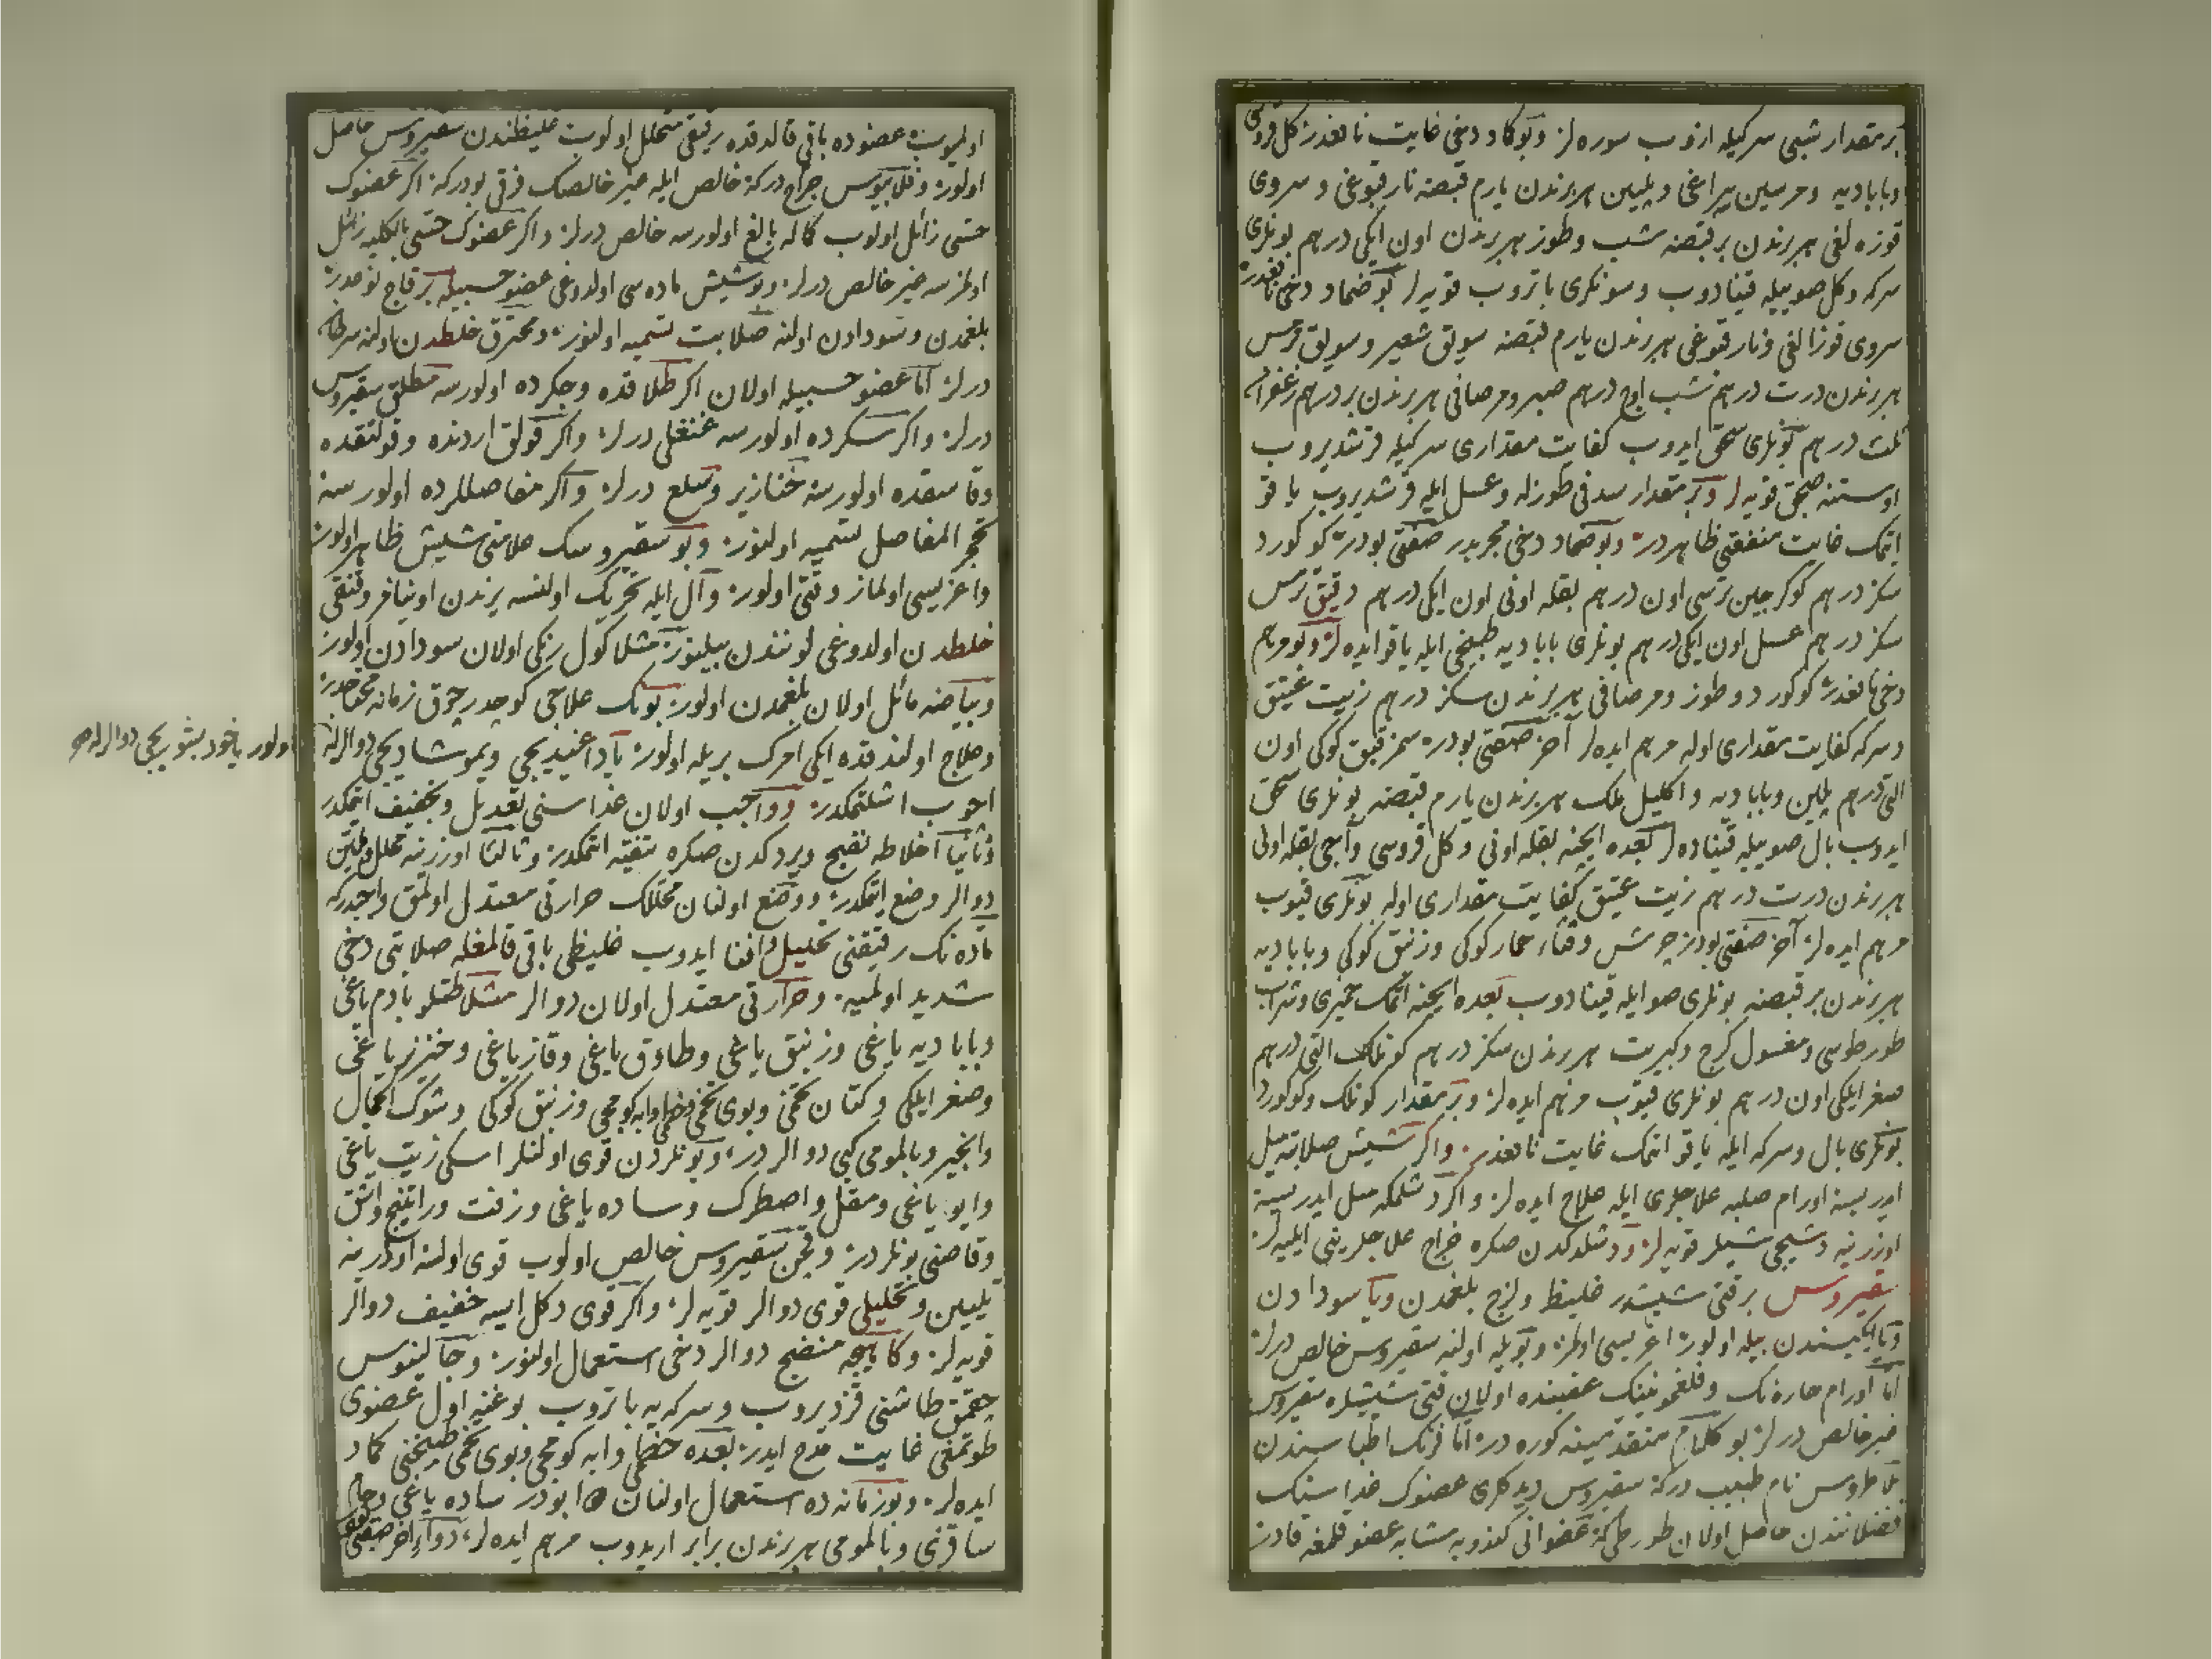 بر مقدار شبی سرکیله ازوب سوره لر وبوکاد دخی غایت نافعدر کل قروسی
وبابادیه ومرسین پیراغی ویلیین هربرندن یارم قبصه نار قبوغی و سروی
قوزه لغی هربرندن بر قبصه شب وطوز هربرندن اون ایکی درهم بونلری
سرکه وکل صوییله قینادوب وسونکری باتروب قویه لر بو ضماد دخی نافعدر
سروی قوزالغی ونار قبوغی هربرندن یارم قبصه سویق شعیر وسویق ترمس
هربرندن درت درهم شب اوچ درهم صبر ومرصافی هربرندن بر درهم زعفران
ثلث درهم بونلری سحق ایدوب کفایت مقداری سرکیله قرشدیروب
اوستنه صیجق قویه لر وبر مقدار سدفی طوزله وعسل ایله قرشدیروب یاقو
اتمک غایت منفعتی ظاهردر وبو ضماد دخی مجربدر صفتی بودر کوکورد
سکز درهم کوکرجین ترسی اون درهم بقله اونی اون ایکی درهم دقیق ترمس
سکز درهم عسل اون ایکی درهم بونلری بابادیه طبیخی ایله یاقو ایده لر وبو مرهم
دخی نافعدر کوکورد وطوز ومرصافی هربرندن سکز درهم زیت عتیق
وسرکه کفایت مقداری اوله مرهم ایده لر آخر صفتی بودر سمز قبق کوکی اون
التی درهم یلیین وبابادیه واکلیل ملک هربرندن یارم قبصه بونلری سحق
ایدوب بال صوییله قیناده لر بعده ایچنه بقله اونی وکل قروسی وآجی بقله اونی
هربرندن درت درهم زیت عتیق کفایت مقداری اوله بونلری قیوب
مرهم ایده لر آخر صفتی بودر چرشس وقثاء حمار کوکی وزنبق کوکی وبابادیه
هربرندن بر قبصه بونلری صو ایله قینادوب بعده ایچنه اتمک خمیری وشراب
طورطوسی ومغسول کرج وکبریت هربرندن سکز درهم کونلک التی درهم
صغر ایلکی اون درهم بونلری قیوب مرهم ایده لر وبر مقدار کونلک وکوکورد
بونلری بال وسرکه ایله یاقو اتمک غایت نافعدر واکر شیش صلابته میل
ایدرسه اورام صلبه علاجلری ایله علاج ایده لر واکر دشلمکه میل ایدرسه
اوزرینه دشیجی شیلر قویه لر ودشلدکدن صکره خراج علاجلرینی ایلیه لر
سقیروس بر قتی شیشدر غلیظ ولزج بلغمدن ویا سودادن
ویا ایکیسندن بیله اولور اغریسی اولمز وبویله اولنه سقیروس خالص درلر
اما اورام حاره نک وفلغمونینک عقبنده اولان قتی شیشلره سقیروس
غیر خالص درلر بو کلام متقدمینه کوره در اما فرنک اطباسندن
نام طبیب درکه سقیروس دیدکلری عضوک غداسنک
فضلاتندن حاصل اولان طورطی که عضو آنی کندویه مشابه عضو قلمغه قادر
اولمیوب عضوده باقی قالدقده رقیقی متحلل اولوب غلیظندن سقیروس حاصل
اولور وفلابیوس جراح درکه خالص ایله غیر خالصک فرقی بودرکه اکر عضوک
حسی زائل اولوب کماله بالغ اولورسه خالص درلر واکر عضوک حسی بالکلیه زائل
اولمزسه غیر خالص درلر وبو شیش ماده سی اولدوغی عضو حسبیله بر قاچ نوعدر
بلغمدن وسودادن اولنه صلابت تسمیه اولنور ومحترق خلطدن اولنه سرطان
درلر اما عضو حسبیله اولان اکر طلاقده وجکرده اولورسه مطلق سقیروس
درلر واکر سکرده اولورسه غنغلی درلر واکر قولق اردنده وقولتقده
وقاسقده اولورسه خنازیر وسلع درلر واکر مفاصللرده اولورسه
تحجر المفاصل تسمیه اولنور وبو سقیروسک علامتی شیش ظاهر اولور
واغریسی اولماز وقتی اولور وآل ایله تحریک اولنسه یرندن اوینافز وقنقی
خلطدن اولدوغی لونندن بیلنور مثلا کول رنکی اولان سودادن اولور
وبیاضه مائل اولان بلغمدن اولور بونک علاجی کوجدر چوق زمانه محتاجدر
وعلاج اولندقده ایکی امرک بریله اولور یا داغیدیجی ویموشادیجی دوالرله
اولور یاخود بشوریجی دوالرله
اجوب اشلتمکدر وواجب اولان غداسنی تعدیل وتخفیف اتمکدر
وثانیا اخلاطه نضج ویردکدن صکره تنقیه اتمکدر وثالثا اوزرینه محلل وملین
دوالر وضع اتمکدر ووضع اولنان محللک حرارتی معتدل اولمق واجبدرکه
ماده نک رقیقنی تحلیل وافنا ایدوب غلیظی باقی قالمغله صلابتی دخی
شدید اولمیه وحرارتی معتدل اولان دوالر مثلا طتلو بادم یاغی
وبابادیه یاغی وزنبق یاغی وطاوق یاغی وقاز یاغی وخنزیر یاغی
وصغر ایلکی وکتان تخمی وبوی تخمی وخطمی وابه کومجی وزنبق کوکی وشوک الجمال
وانجیر وبالمومی کبی دوالر در وبونلردن قوی اولنلر اسکی زیت یاغی
وایو یاغی ومقل واصطرک وساده یاغی وزفت وراتینج واشق
وقاصنی بونلردر وقچن سقیروس خالص اولوب قوی اولسه اوزرینه
تلیین وتحلیلی قوی دوالر قویه لر واکر قوی دکل ایسه خفیف دوالر
قویه لر وکاهیجه منضج دوالر دخی استعمال اولنور وجالینوس
چقمق طاشنی قزدیروب وسرکه یه باتروب بوغنه اول عضوی
طوتمغی غایت مدح ایدر بعده خطمی وابه کومجی وبوی تخمی طبیخنی کماد
ایده لر وبو زمانه ده استعمال اولنان بودر ساده یاغی وچام
ساقزی وبالمومی هربرندن برابر اریدوب مرهم ایده لر دواء آخر صفتی